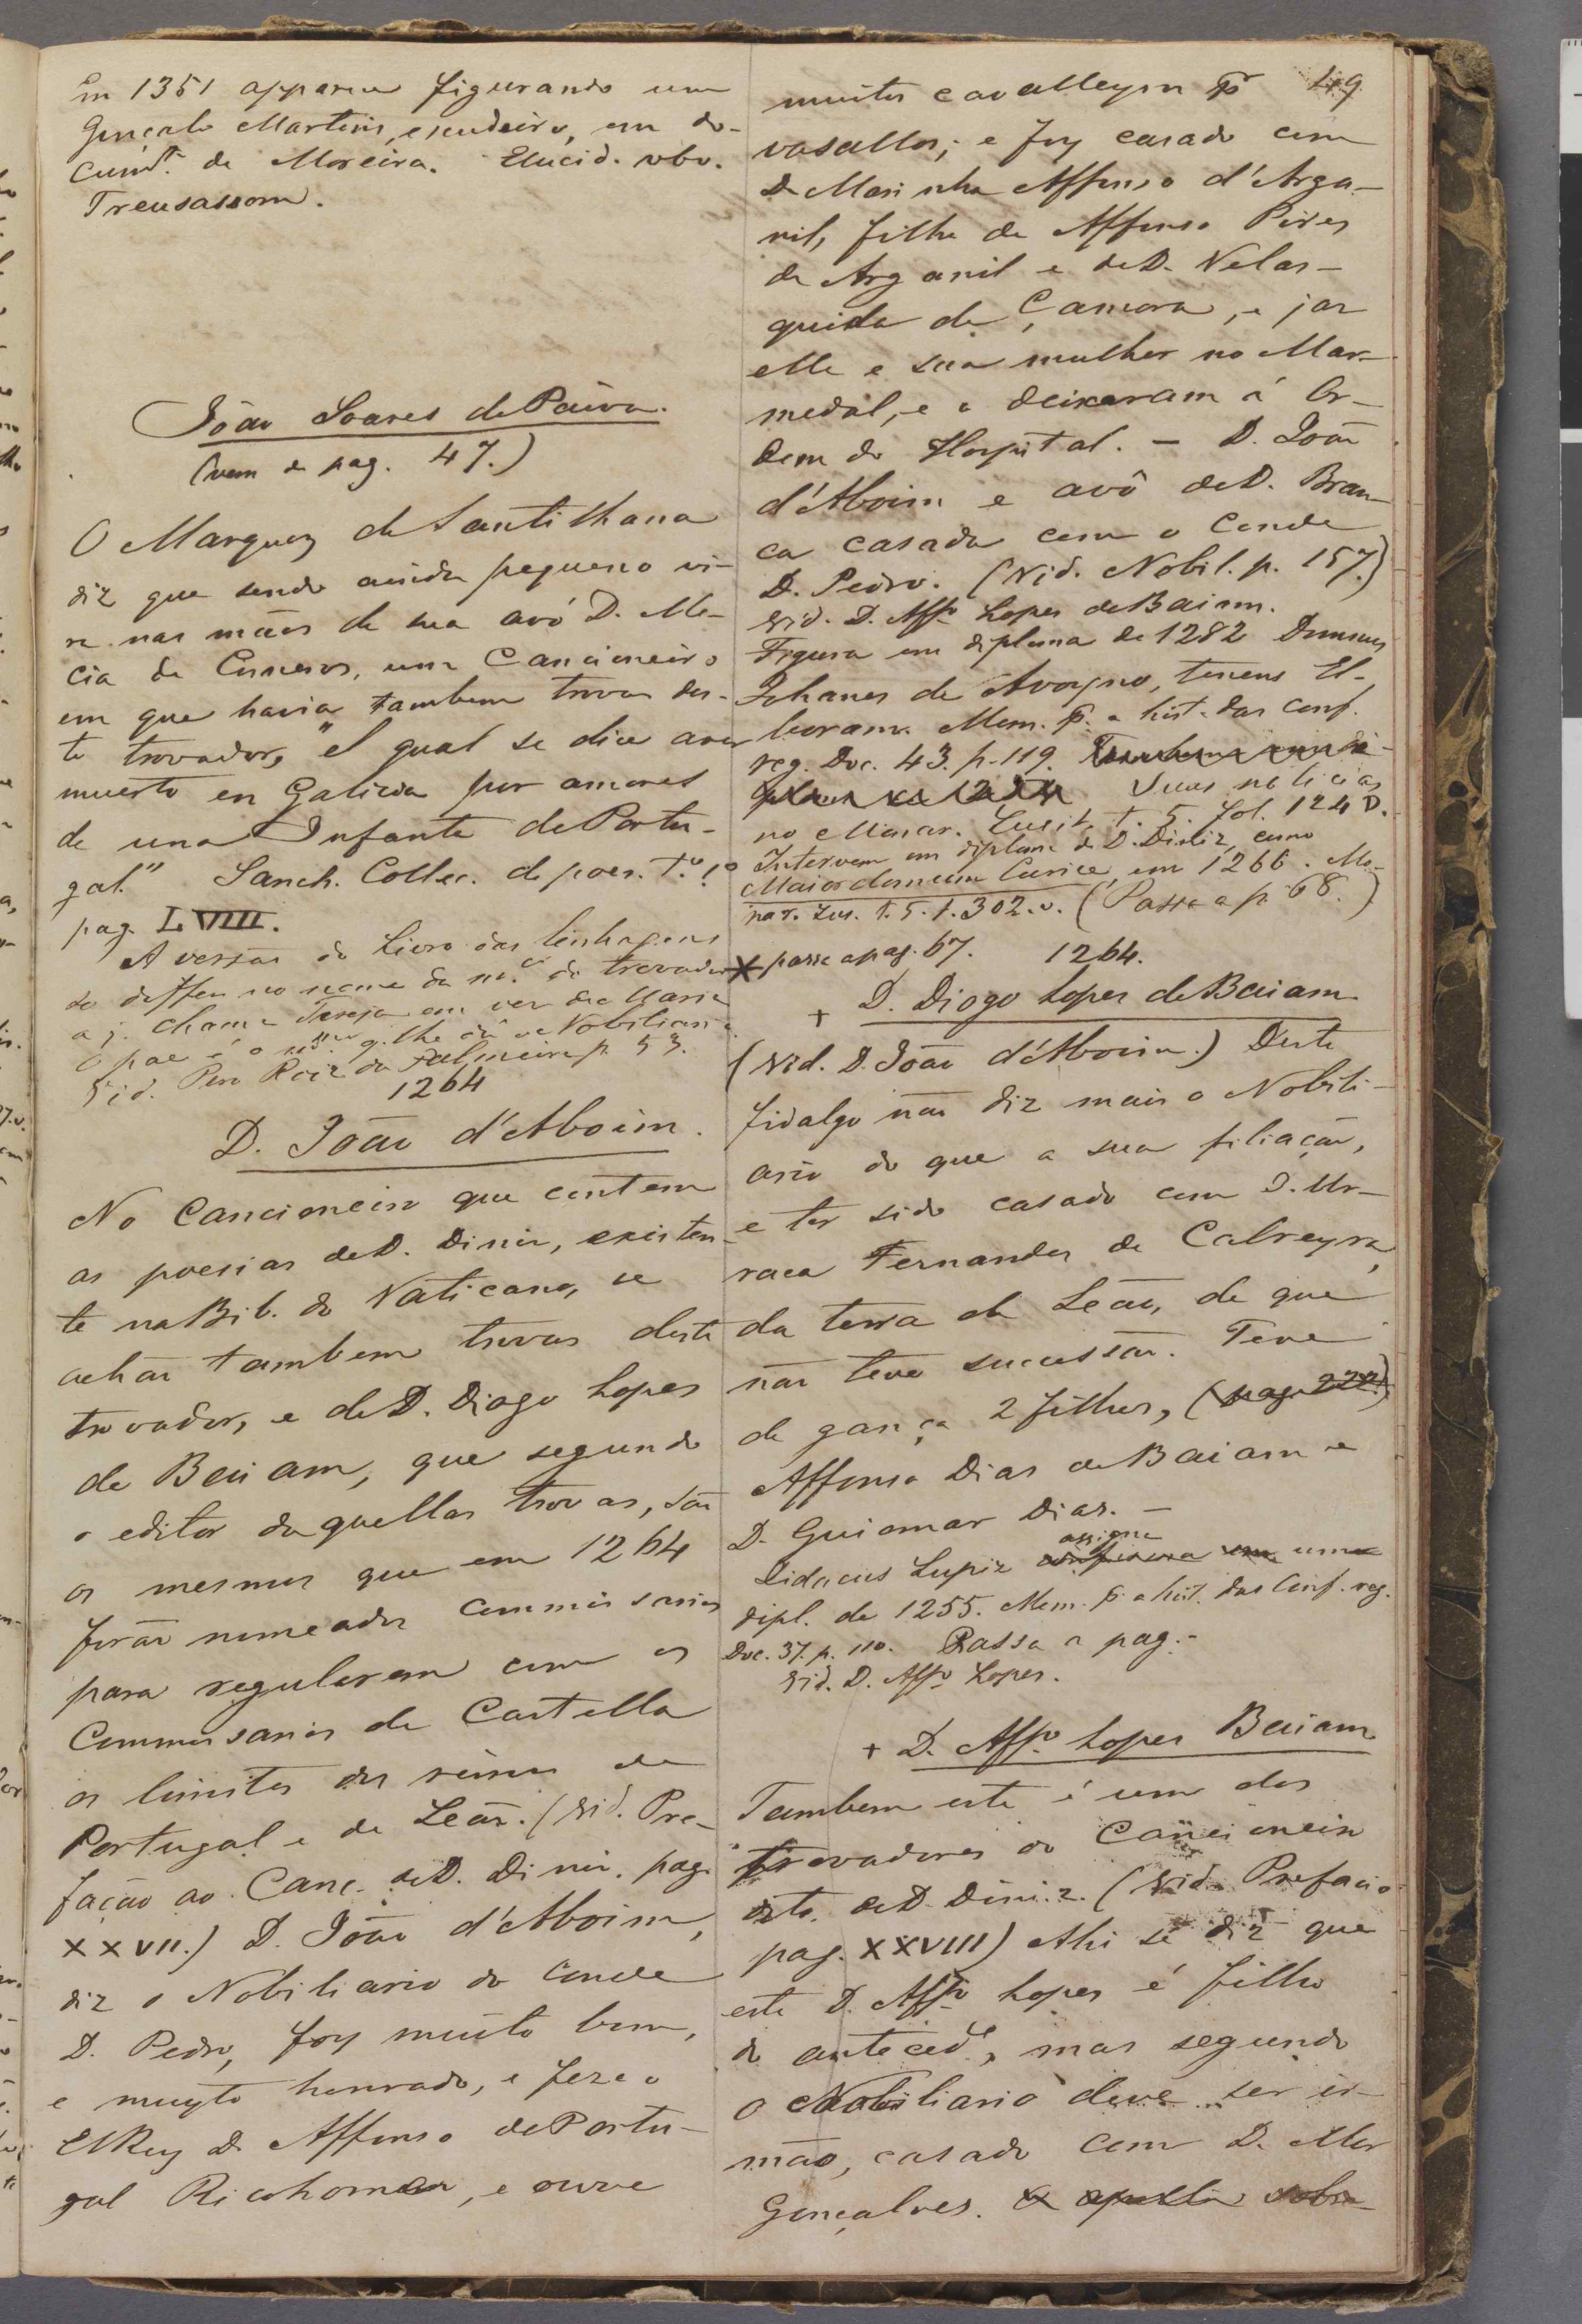 Em 1351 apparece figurando um
Gonçalo Martins, escudeiro, em do-
cumto. de Moreira. Elucid. vbo.
Treusassom.
João Soares de Paiva.
(vem de pag. 47.)
O Marquez de Santilhana
diz que sendo ainda pequeno vi-
ra nas mãos de sua avó D. Me-
cia de Cisneros, um Cancioneiro
em que havia tambem trovas des-
te trovador, "el qual se dice aver
muerto en Galicia por amores
de una Infante de Portu-
gal." Sanch. Collec. de poes. T.o 1.o
pag. LVIII.
A versão do Livro das linhagens
do differe no nome da m.er do trovador
a q. chama Tereja em vez de Maria
O pae é o q. lhe dá o Nobiliario.
Vid. Pero Roiz da Palmeira p. 53.
1264
D. João d'Aboim.
No Cancioneiro que contem
as poesias de D. Diniz, existen-
te na Bib. do Vaticano, se
achão tambem trovas deste
trovador, e de D. Diogo Lopes
de Baiam, que segundo
o editor daquellas trovas, são
os mesmos que em 1264
forão nomeados Commissarios
para regularem com os
Commissarios de Castella
os limites dos reinos de
Portugal e de Leão. (Vid. Pre-
fação ao Canc. de D. Diniz. pag.
XXVII.) D. João d'Aboim,
diz o Nobiliario do Conde
D. Pedro, foy muito bom,
e muyto honrado, e feze o
ElRey D. Affonso de Portu-
gal Ricohomem, e ouve
49
muitos cavalleyros por
vasallos; e foy casado com
D. Marinha Affonso d'Arga-
nil, filha de Affonso Pires
de Arganil e de D. Velas-
quida de Çamora, e jaz
elle e sua mulher no Mar-
medal, e o deixaram á Or-
dem do Hospital. - D. João
d'Aboim e avô de D. Bran-
ca casada com o Conde
D. Pedro. (Vid. Nobil. p. 157.)
Vid. D. Affo. Lopes de Baiam.
Figura em diploma de 1282 Domnus
Johanes de Avoyno, tenens El-
boram. Mem. p. a hist. das conf.
reg. Doc. 43. p. 119.
Suas noticias
no Monar. Lusit. t. 5. fol. 124 v.
Intervem em diploma de D. Diniz, como
Maiordomum Curiae, em 1266. Mo-
nar. Lus. t. 5. f. 302. v. (Passa a p. 68.)
X passa a pag. 67. 1264.
+ D. Diogo Lopes de Baiam
(Vid. D. João d'Aboim.) Deste
fidalgo não diz mais o Nobili-
ario do que a sua filiação,
e ter sido casado com D. Ur-
raca Fernandes de Calreyra,
da terra de Leão, de que
não teve successão. Teve
de gança 2 filhos, (pag. 222.)
Affonso Dias de Baiam e
D. Guiomar Dias. -
assigna
Didacus Lupiz uma
dipl. de 1255. Mem. p. a hist. das Conf. reg.
Doc. 37. p. 110. Passa a pag. -
Vid. D. Affo. Lopes.
+ D. Affo. Lopes Baiam
Tambem este é um dos
trovadores do Cancioneiro
dito de D. Diniz. (Vid. Prefacio
pag. XXVIII) Ahi se diz que
este D. Affo. Lopes é filho
do anteced.e, mas segundo
o Nobiliario deve ser ir-
mão, casado com D. Mor
Gonçalves.